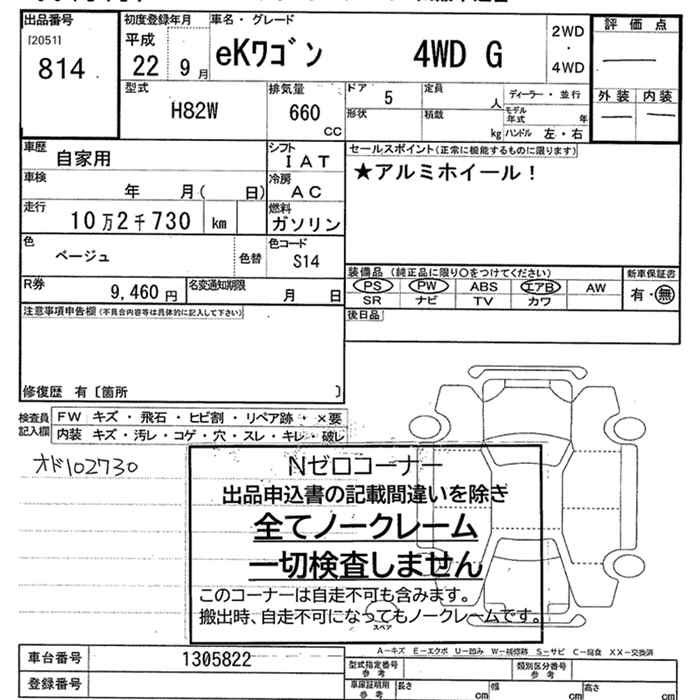 出品番号 初度登録年月 車名・グレード 評価点
[2051]
814
平成 22 9月 eKワゴン 4WD G 2WD・4WD
外装 内装
型式 H82W 排気量 660 CC
ドア 5 定員 人 ディーラー・並行
形状 積載 kg モデル年式 年
ハンドル 左・右
車歴 自家用 シフト IAT
セールスポイント(正常に機能するものに限ります)
★アルミホイール!
車検 年 月( 日) 冷房 AC
走行 10万2千730 km 燃料 ガソリン
色 ベージュ 色替 色コード S14
装備品(純正品に限り○をつけてください) 新車保証書
PS PW ABS エアB AW 有・無
SR ナビ TV カワ
R券 9,460円 名変通知期限 月 日
後日品
注意事項申告欄(不具合内容等は具体的に記入して下さい)
修復歴 有〔箇所 〕
検査員記入欄 FW キズ・飛石・ヒビ割・リペア跡・×要
内装 キズ・汚レ・コゲ・穴・スレ・キレ・破レ
オド102730
Nゼロコーナー
出品申込書の記載間違いを除き
全てノークレーム
一切検査しません
このコーナーは自走不可も含みます。
搬出時、自走不可になってもノークレームです。
スペア
A-キズ E-エクボ U-凹み W-補修跡 S-サビ C-腐食 XX-交換済
車台番号 1305822 型式指定番号 参考 類別区分番号 参考
登録番号 車庫証明用 参考 長さ cm 幅 cm 高さ cm